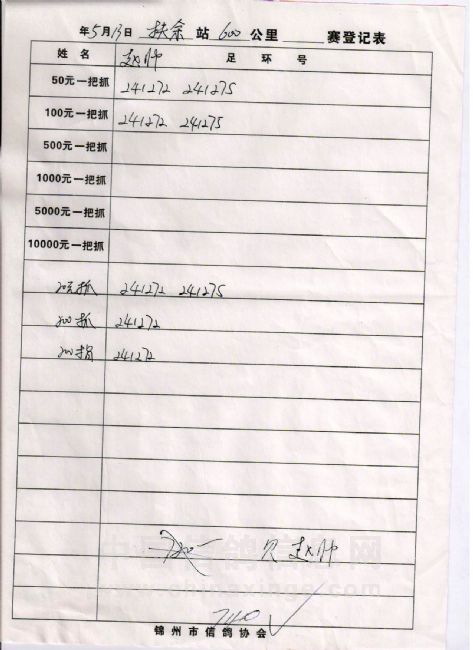 年5月13日 扶余 站 600 公里 赛登记表
姓名 赵帅 足环号
50元一把抓 241272 241275
100元一把抓 241272 241275
500元一把抓
1000元一把抓
5000元一把抓
10000元一把抓
抓 241272 241275
200抓 241272
241272
欠 赵帅
中国信鸽信息网
www.chinaxinge.com
740
锦州市信鸽协会